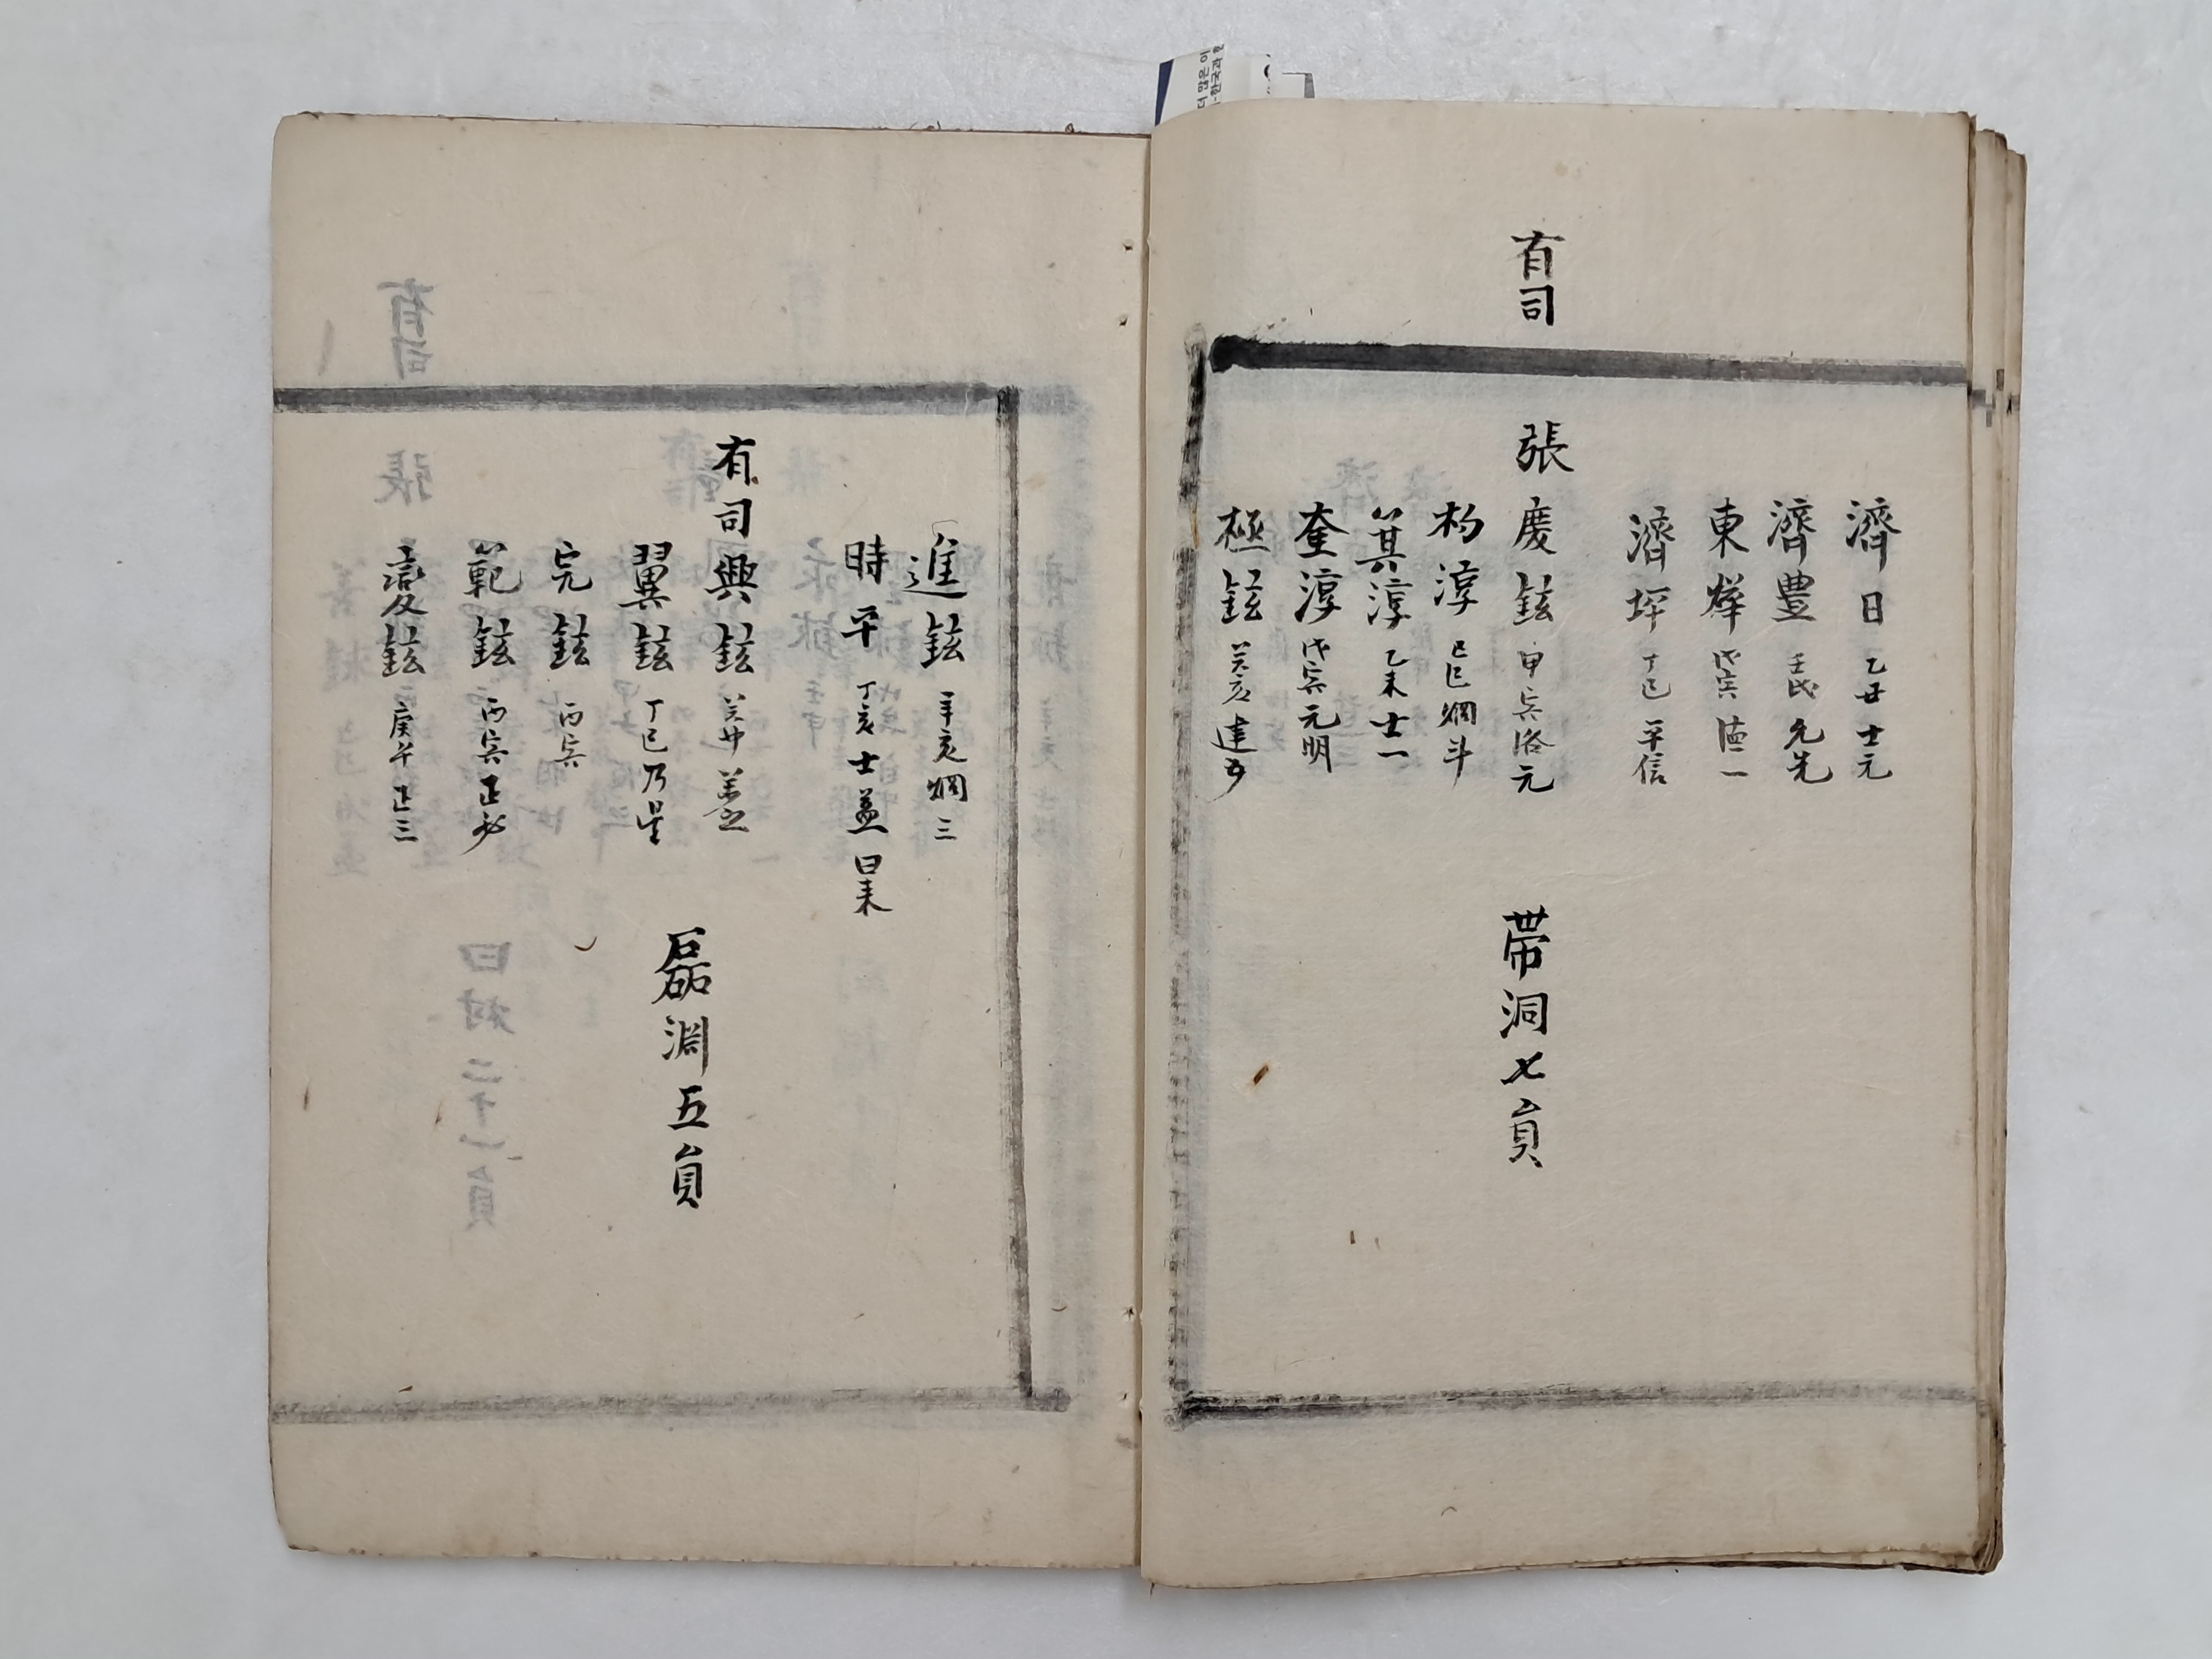 濟日 乙丑 士元
濟豊 壬戌 允先
東燁 戊寅 德一
濟坪 丁巳 平信
有司
張慶鉉 甲寅 洛元
杓淳 己巳 炯斗
箕淳 乙未 士一
奎淳 戊寅 元明
極鉉 癸亥 達五
帶洞七員
進鉉 辛亥 炯三
時平 丁亥 士益 日来
有司 興鉉 癸丑 善
翼鉉 丁巳 乃星
完鉉 丙寅
範鉉 丙寅 正
燮鉉 庚午 正三
磊淵五員
더 많은 이
한국과